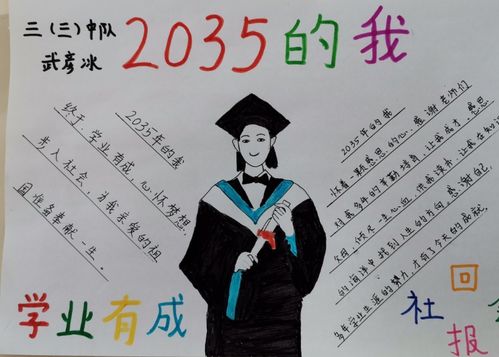 三（三）中队
武彦冰
2035的我
2035年的我
终于，学业有成，心怀梦想，
步入社会，为我亲爱的祖
国准备奉献一生。
2035年的我
怀着一颗感恩的心，感谢老师们
对我多年的辛勤培育，让我成才，感恩
父母，倾尽一生心血，供我读书，让我在知识
的海洋中找到人生的方向，感谢自己
多年学业生涯的努力，才有了今天的成就。
学业有成
回
社
报